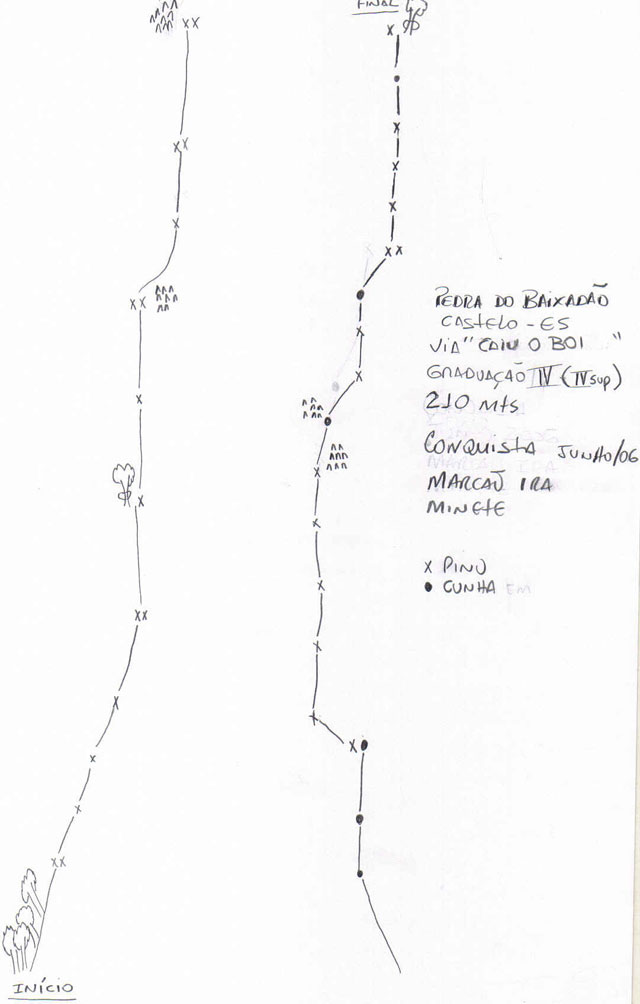 FINAL
PEDRA DO BAIXADÃO
CASTELO - ES
VIA "CAIU O BOI"
GRADUAÇÃO IV (IV SUP)
210 MTS
CONQUISTA JUNHO/06
MINETE
X PINO
● CUNHA
INÍCIO